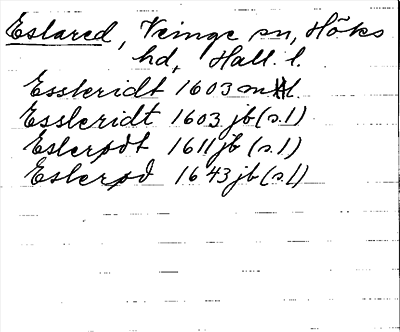 Eslared, Veinge sn, Höks
hd, Hall. l.
Essleridt 1603 mtl.
Essleridt 1603 jb (s. 1)
Eslerødt 1611 jb (s. 1)
Eslerød 1643 jb (s. 1)